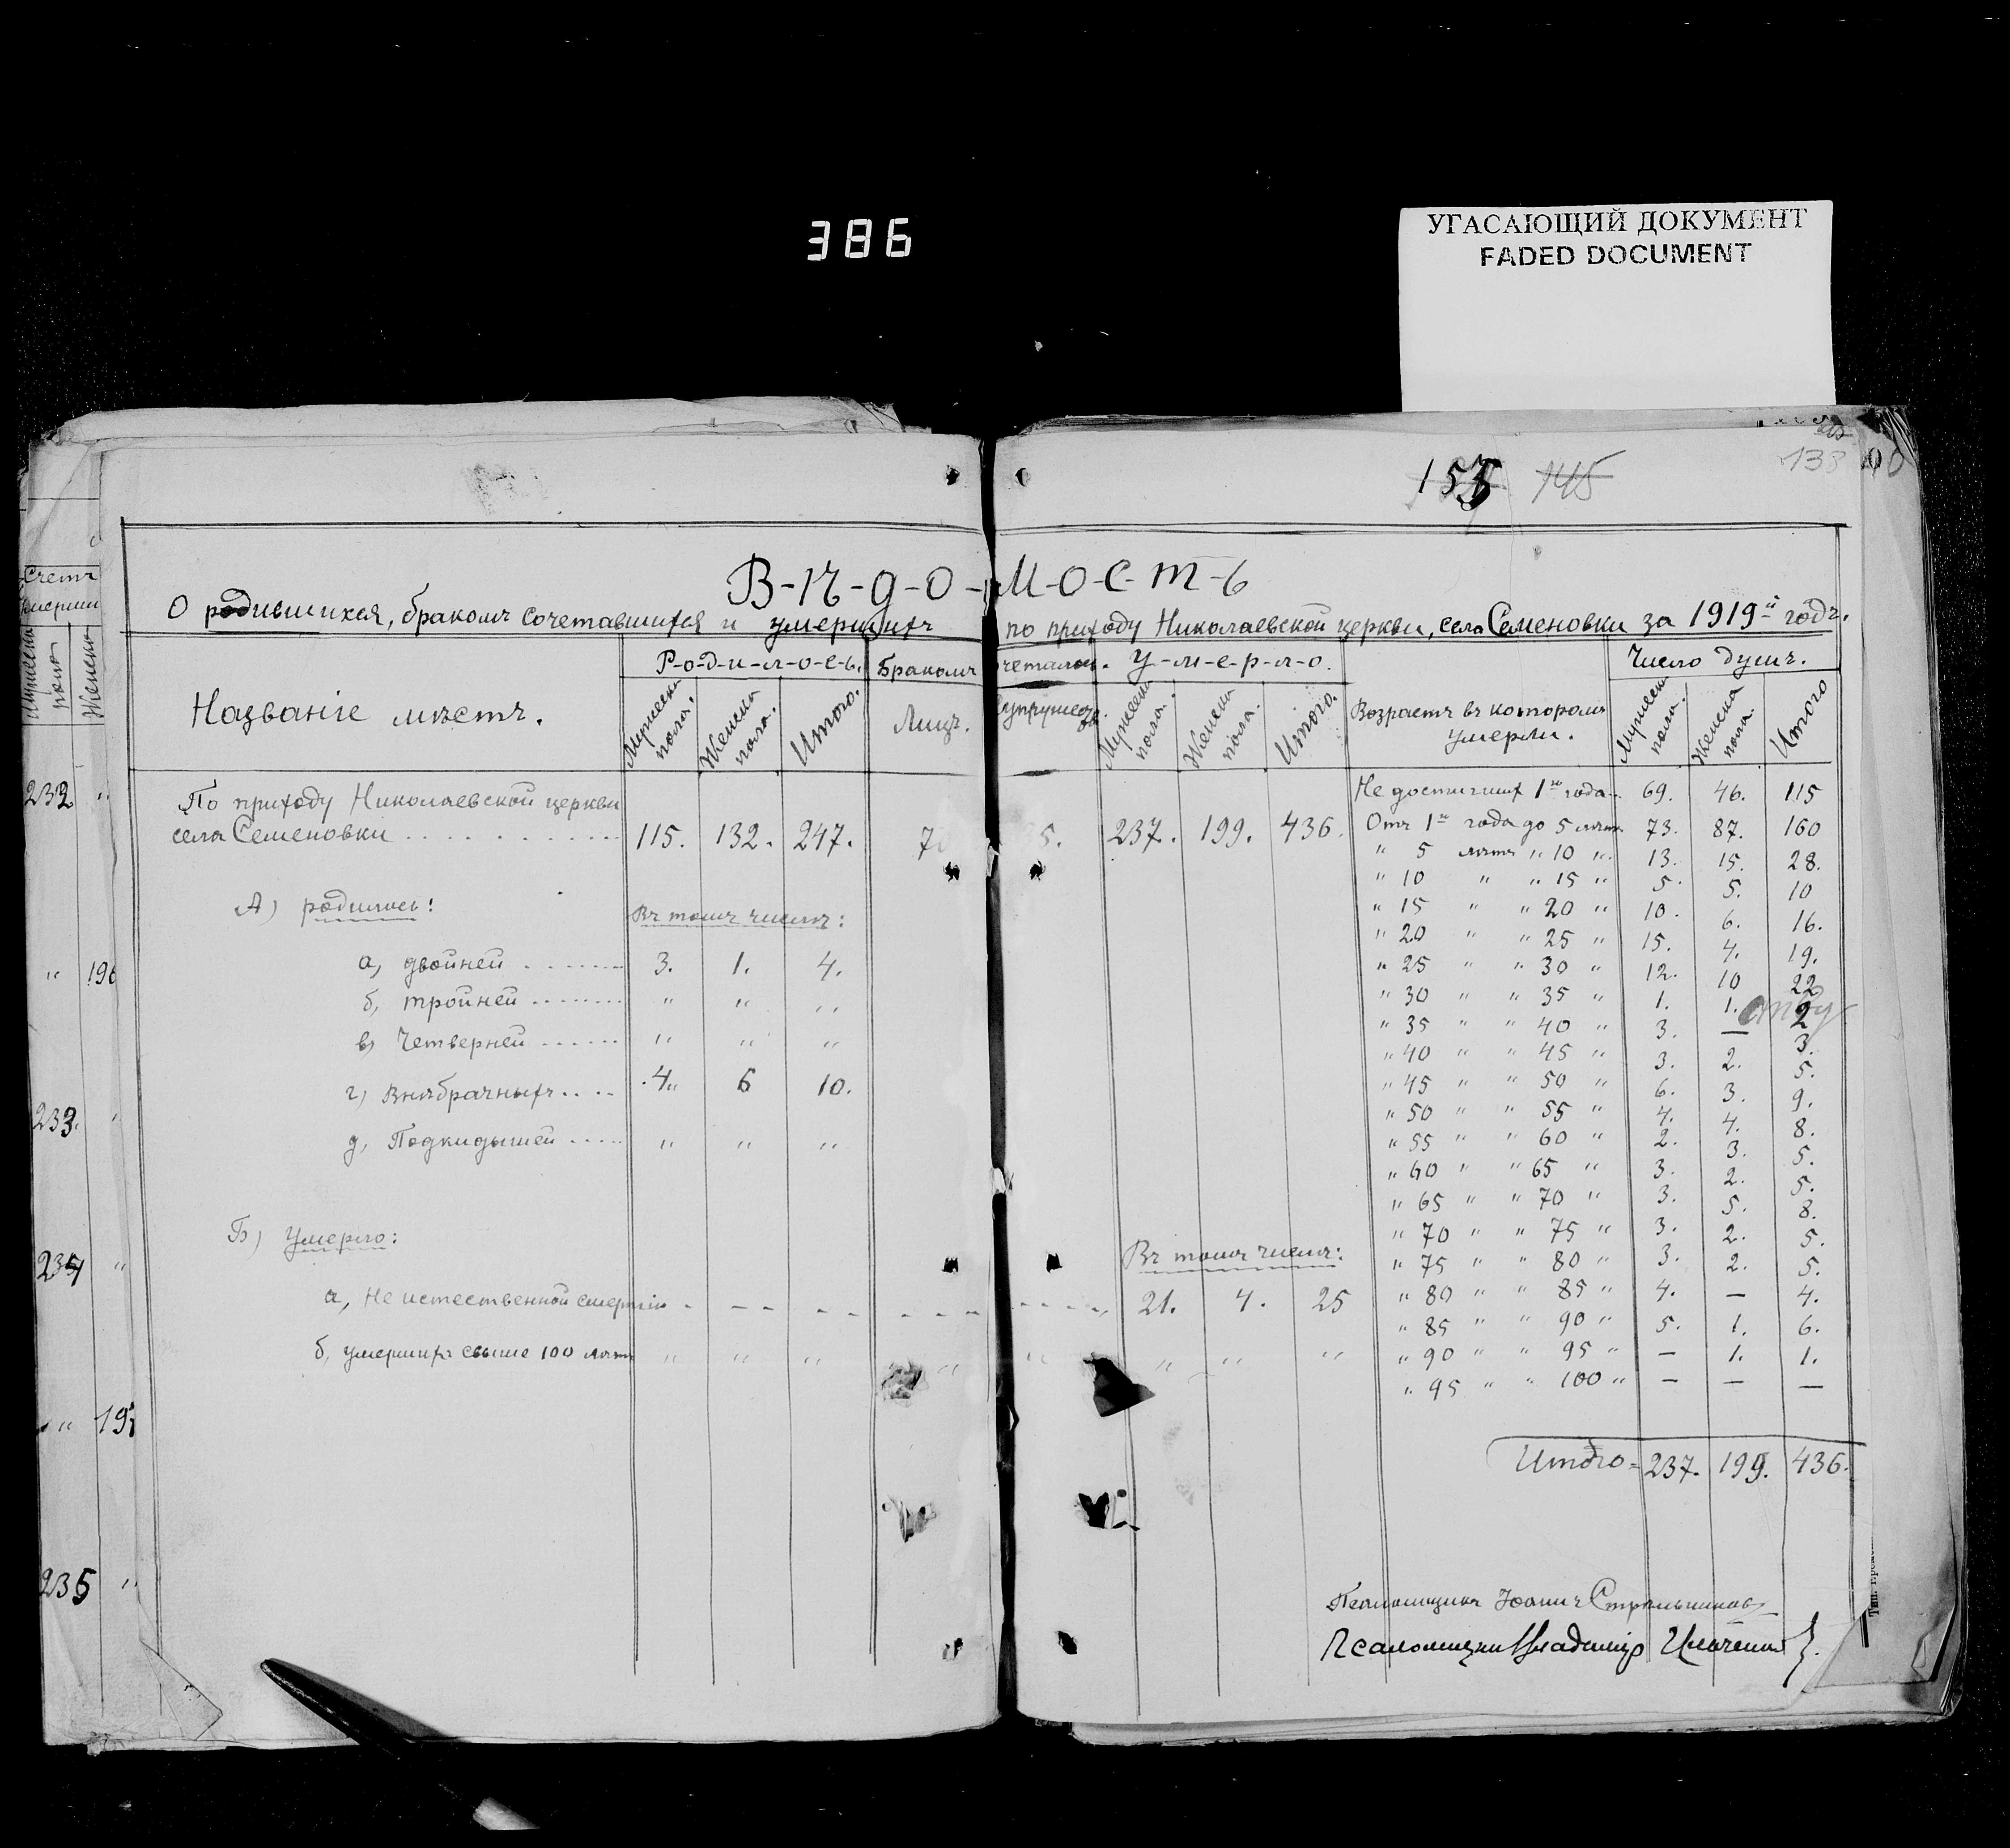 386
УГАСАЮЩИЙ ДОКУМЕНТ
FADED DOCUMENT
155 145
133
В-ѣ-д-о-м-о-с-т-ь
О родившихся, бракомъ сочетавшихся и умершихъ по приходу Николаевской церкви, села Семеновки за 1919й годъ.
Названіе мѣстъ. Р-о-д-и-л-о-с-ь. Бракомъ У-м-е-р-л-о. Возрастъ въ которомъ умерли. Число душъ.
Мужеска пола. Женска пола. Итого. Лицъ. Мужеска пола. Женска пола. Итого. Мужеска пола. Женска пола. Итого
По приходу Николаевской церкви
села Семеновки 115. 132. 247. 7 5. 237. 199. 436.
А) родилось: Въ томъ числѣ:
а, двойней 3. 1. 4.
б, тройней " " "
в, Четверней " " "
г) Внѣбрачныхъ 4" 6 10.
д, Подкидышей " " "
Б) Умерло: Въ томъ числѣ:
а, Не истественной смертію 21. 4. 25
б, умершихъ свыше 100 лѣтъ " " " " " " " "
Не достигших 1го года 69. 46. 115
Отъ 1го года до 5 лѣтъ 73. 87. 160
" 5 лѣтъ " 10 " 13. 15. 28.
" 10 " " 15 " 5. 5. 10
" 15 " " 20 " 10. 6. 16.
" 20 " " 25 " 15. 4. 19.
" 25 " " 30 " 12. 10 22
" 30 " " 35 " 1. 1. 2
" 35 " " 40 " 3. — 3.
" 40 " " 45 " 3. 2. 5.
" 45 " " 50 " 6. 3. 9.
" 50 " " 55 " 4. 4. 8.
" 55 " " 60 " 2. 3. 5.
" 60 " " 65 " 3. 2. 5.
" 65 " " 70 " 3. 5. 8.
" 70 " " 75 " 3. 2. 5.
" 75 " " 80 " 3. 2. 5.
" 80 " " 85 " 4. — 4.
" 85 " " 90 " 5. 1. 6.
" 90 " " 95 " — 1. 1.
" 95 " " 100 " — — —
Итого = 237. 199. 436.
Псаломщикъ Іоаннъ Стрельников
Псаломщикъ Владиміръ
Счетъ
Мужеска пола Женска
232 "
" 196
233. "
234 "
" 197
235 "